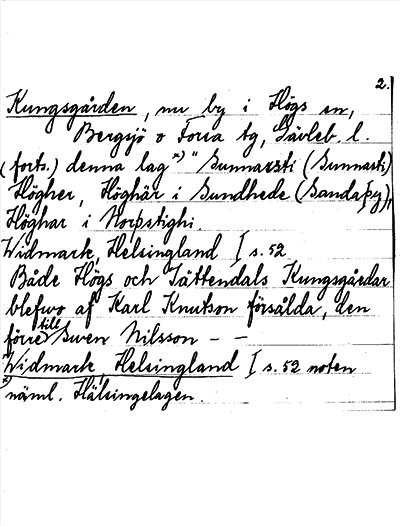 2.
Kungsgården, nu by i Högs sn,
Bergsjö o Forsa tg, Gävleb. l.
(forts.) denna lag *) "Sunnarsti (Sunnarsti)
Högher, Höghär i Sundhede (Sandaþy),
Höghar i Norþstighi.
Widmark, Helsingland I s. 52
Både Högs och Jättendals Kungsgårdar
blefwo af Karl Knutson försålda, den
förre till Swen Nilsson – –
Widmark, Helsingland I s. 52 noten
*) näml. Hälsingelagen.